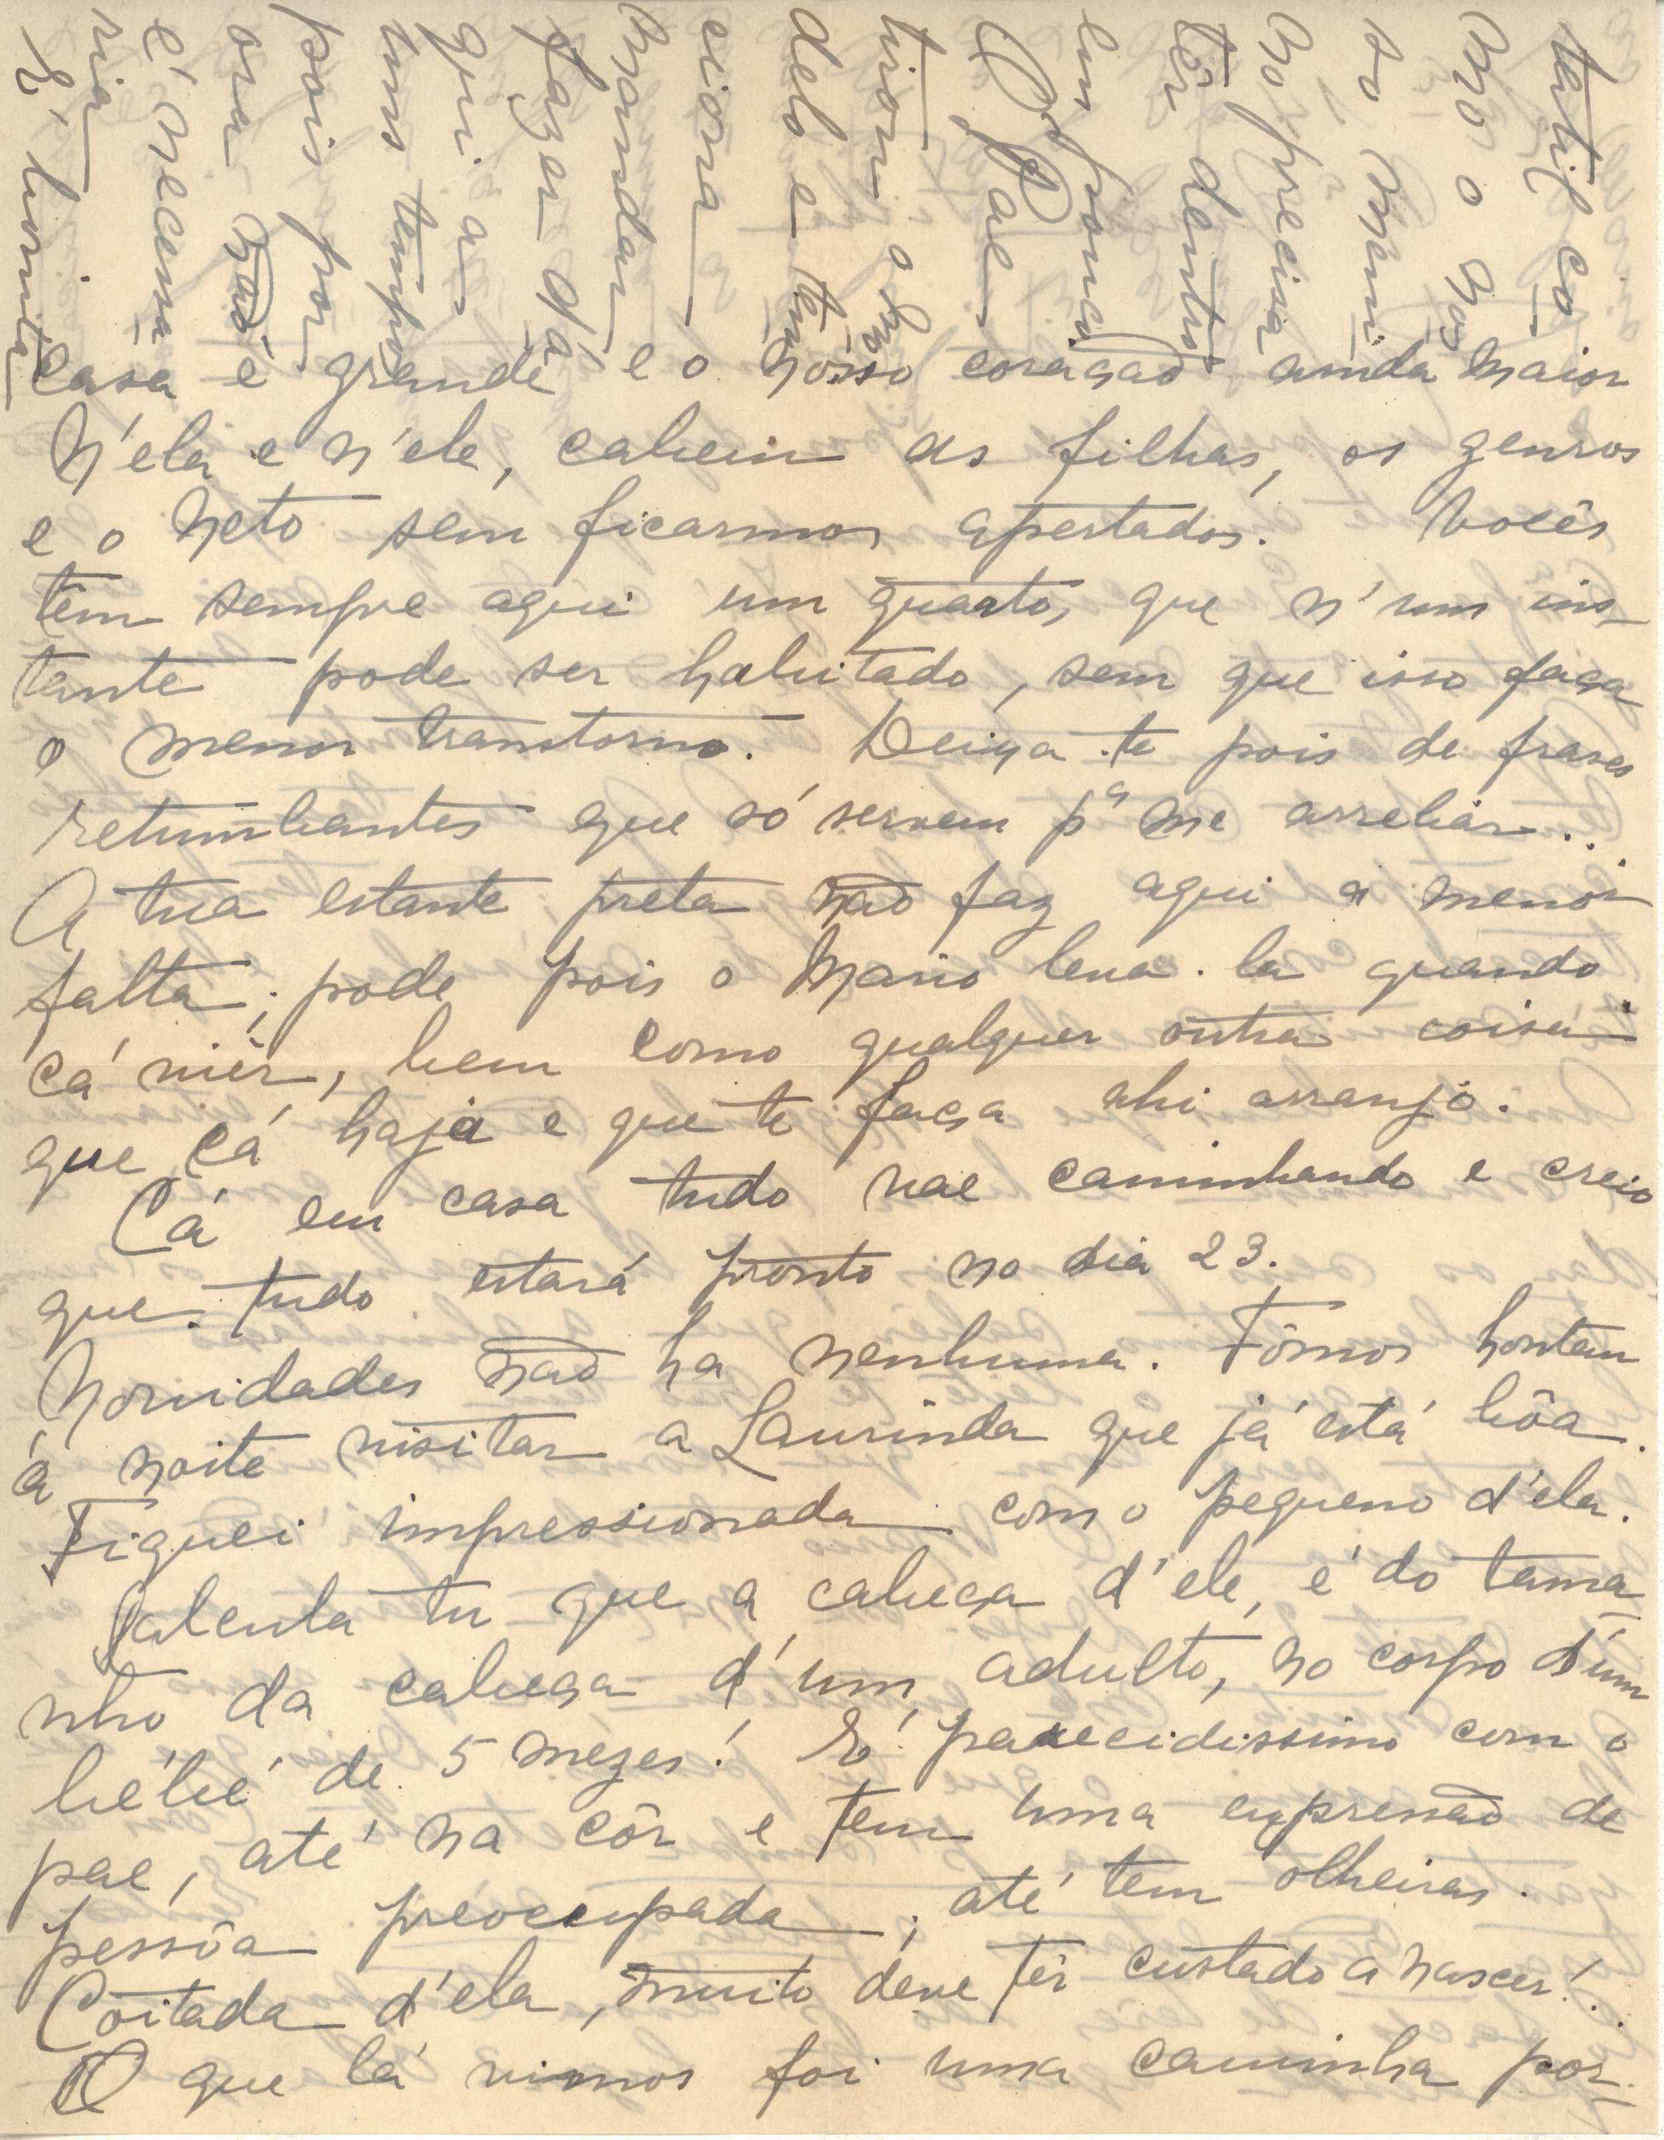 casa é grande e o nosso coração ainda maior
N'ela e n'ele, cabem as filhas, os genros
e o neto sem ficarmos apertados. Vocês
têm sempre aqui um quarto, que n'um ins-
tante pode ser habitado, sem que isso faça
o menor transtorno. Deixa-te pois de frases
retumbantes que só servem pª me arreliar...
A tua estante preta não faz aqui a menor
falta; pode pois o Mario leva-la quando
cá viér, bem como qualquer outra coisa
que cá haja e que te faça ahi arranjo.
Cá em casa tudo vae caminhando e creio
que tudo estará pronto no dia 23.
Novidades não ha nenhuma. Fômos hontem
á noite visitar a Laurinda que já está bôa.
Fiquei impressionada com o pequeno d'ela.
Calcula tu que a cabeça d'ele, é do tama-
nho da cabeça d'um adulto, no corpo d'um
bébé de 5 mezes! É parecidissimo com o
pae, até na côr e tem uma expressão de
pessôa preocupada; até tem olheiras.
Coitada d'ela, muito deve têr custado a nascer!.
O que lá vimos foi uma caminha por-
tatil co-
mo o nos-
so meni-
no precisa
têr dentro
em pouco
O Pae
tirou o mo-
delo e ten-
ciona
mandar
fazer d'a-
qui a
uns tempos
pois por
ora não
é necessa-
ria
É bonita